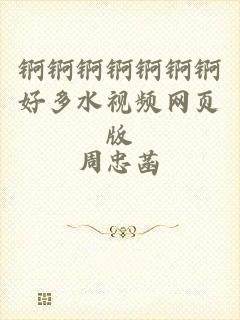 锕锕锕锕锕锕锕
好多水视频网页
版
周忠菡